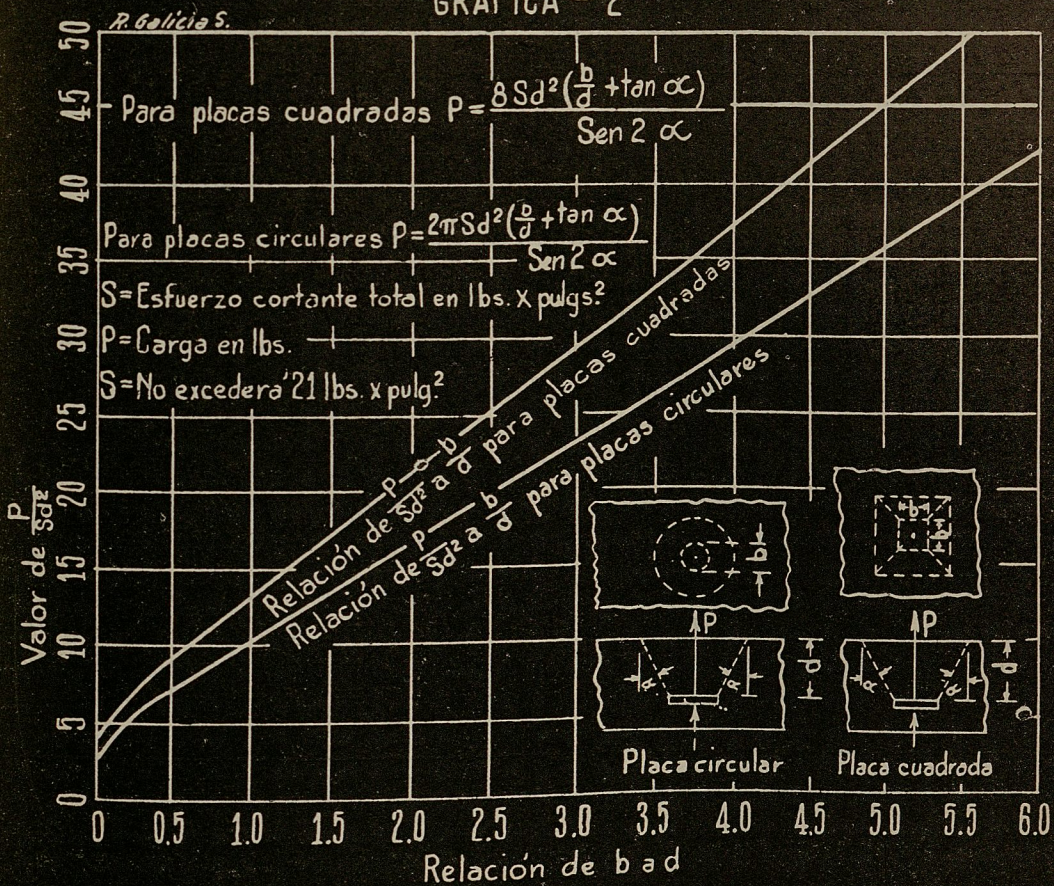 GRAFICA - 2
R. Galicia S.
Para placas cuadradas P = 8 Sd² (b/d + tan ∝) / Sen 2 ∝
Para placas circulares P = 2π Sd² (b/d + tan ∝) / Sen 2 ∝
S = Esfuerzo cortante total en lbs. x pulgs.²
P = Carga en lbs.
S = No excederá 21 lbs. x pulg.²
Relación de P/Sd² a b/d para placas cuadradas
Relación de P/Sd² a b/d para placas circulares
Valor de P/Sd²
50
45
40
35
30
25
20
15
10
5
0
b
b
b
P
P
∝
∝
d
∝
∝
d
Placa circular
Placa cuadrada
0 0.5 1.0 1.5 2.0 2.5 3.0 3.5 4.0 4.5 5.0 5.5 6.0
Relación de b a d